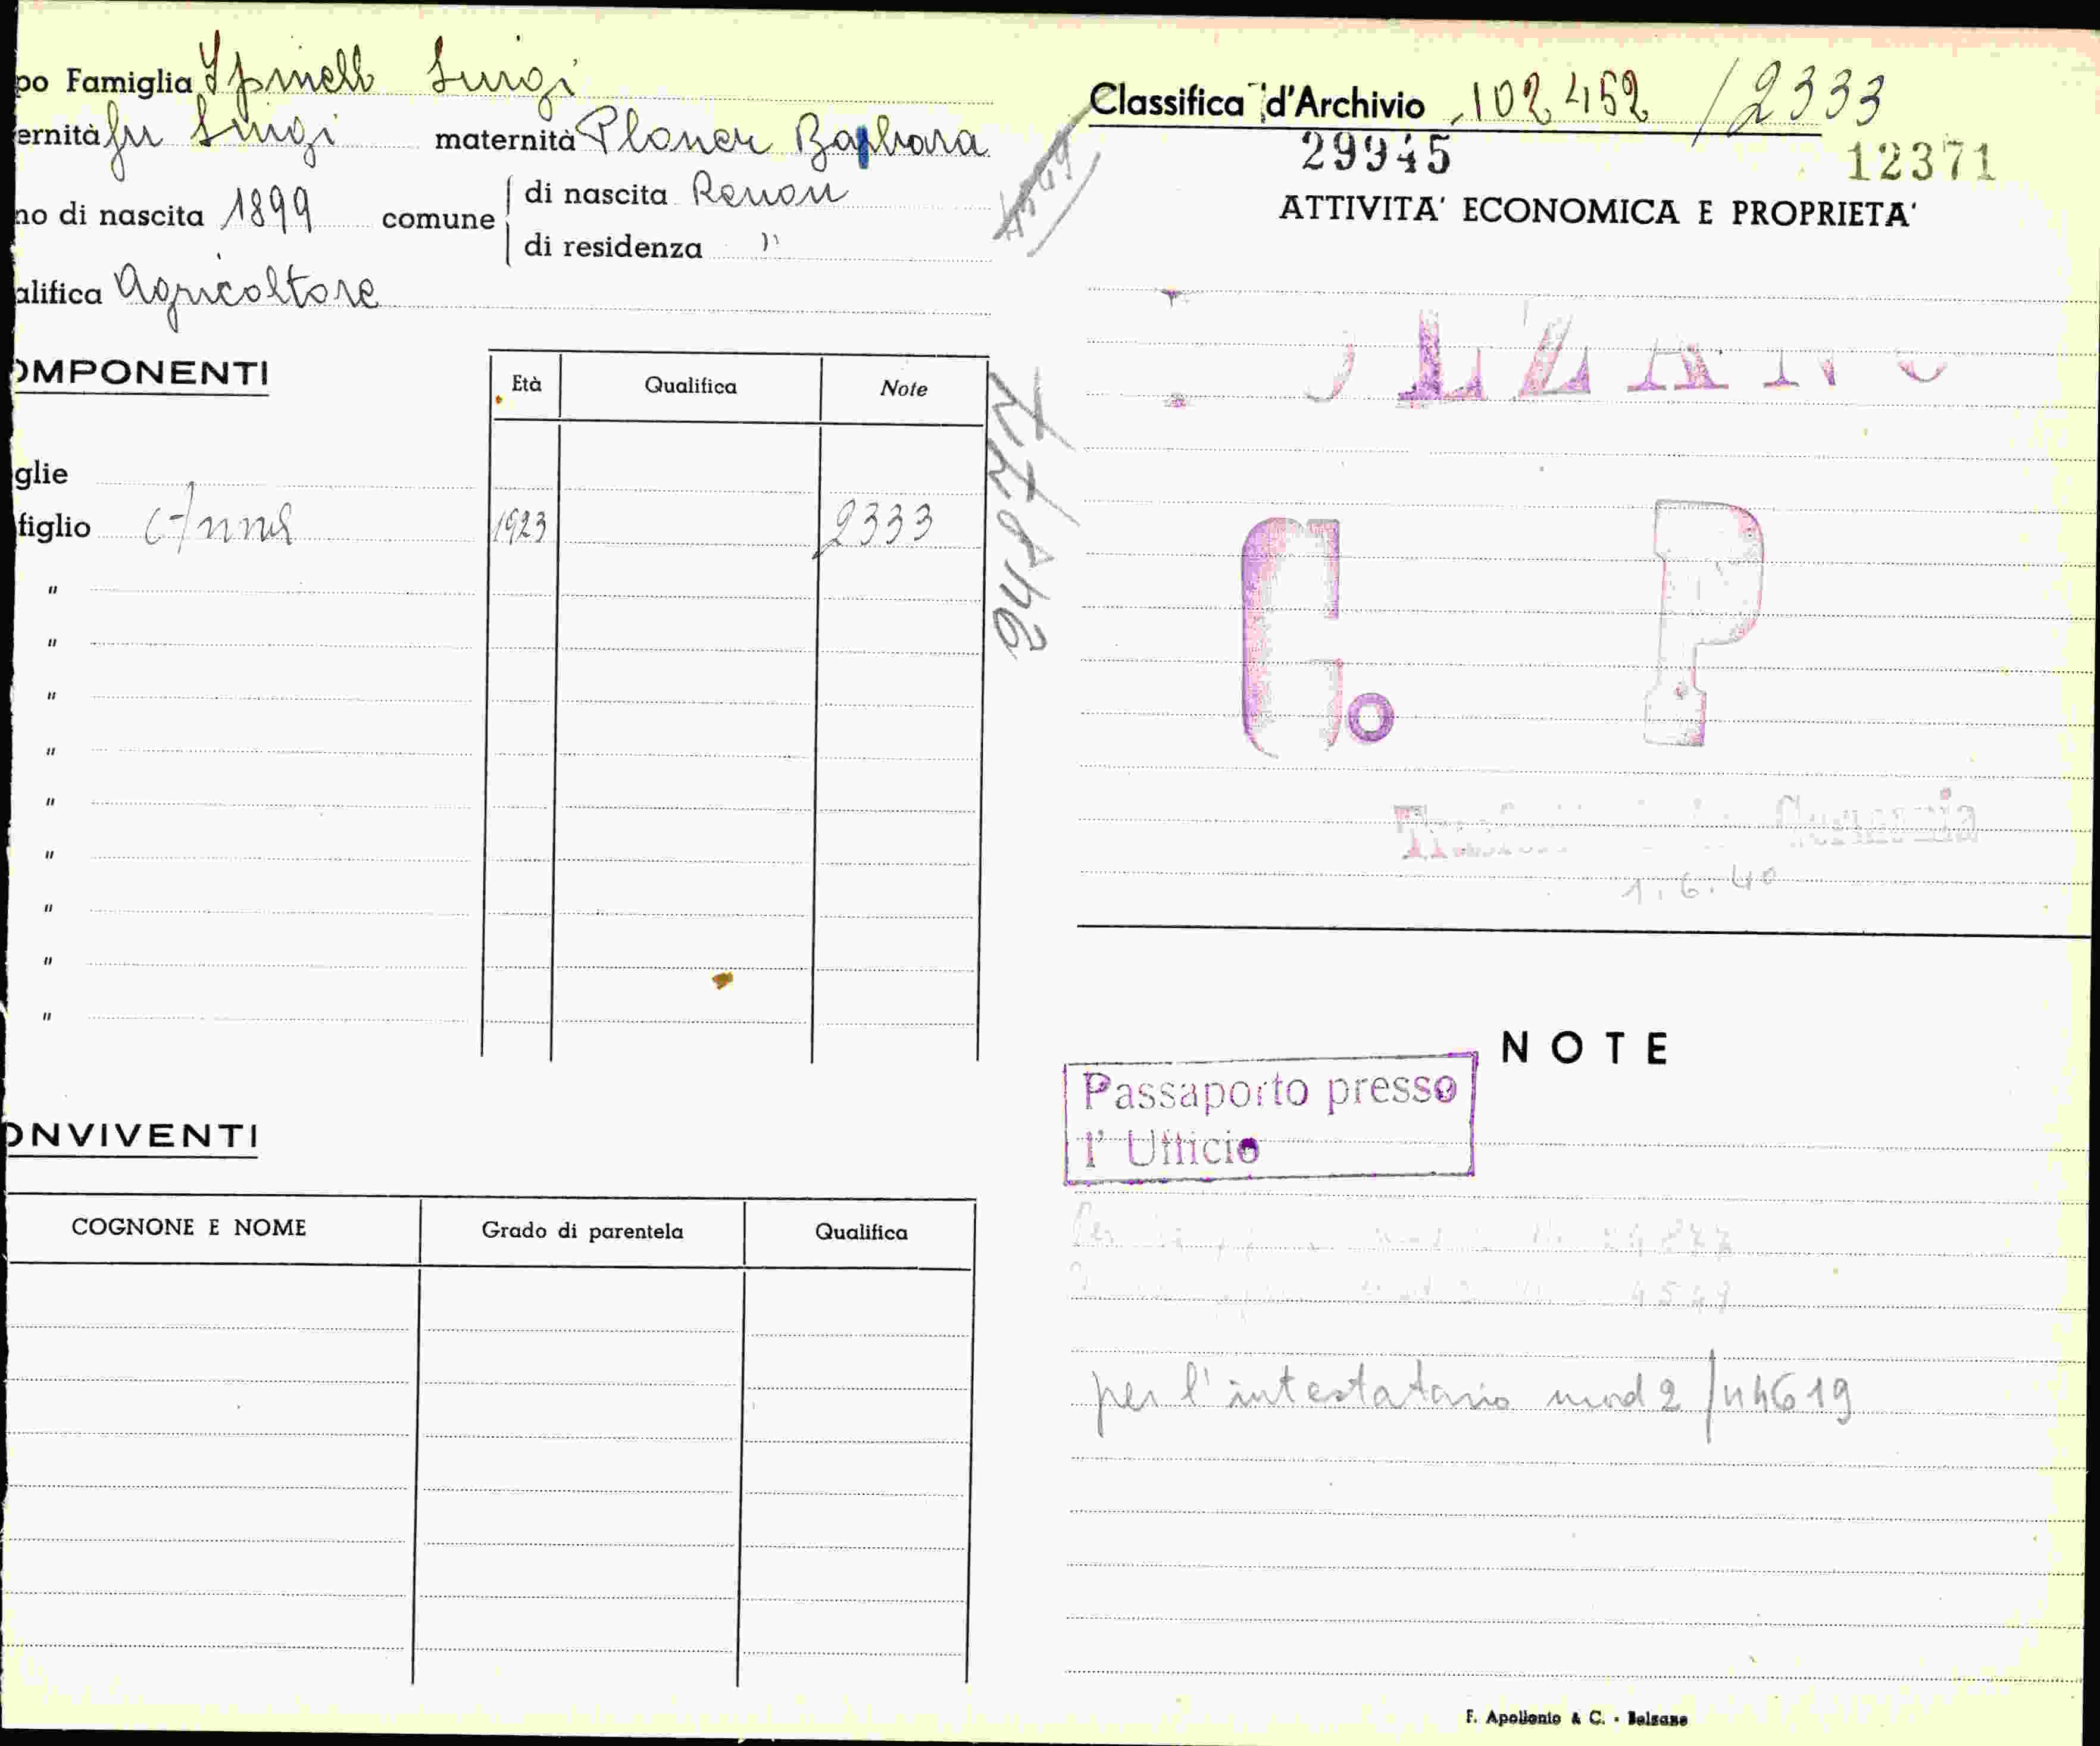 po Famiglia Spinell Luigi
ernità fu Luigi maternità Ploner Barbara
no di nascita 1899 comune di nascita Renon
di residenza "
alifica Agricoltore
OMPONENTI
Età Qualifica Note
glie
figlio Anna 1923 2333
"
"
"
"
"
"
"
"
"
ONVIVENTI
COGNONE E NOME Grado di parentela Qualifica
24877
Classifica d'Archivio 102452 /2333
29945 12371
ATTIVITA' ECONOMICA E PROPRIETA'
C. P
Germania
1.6.40
NOTE
Passaporto presso
l' Ufficio
per l'intestatario mod 2 /44619
F. Apollonio & C. - Bolzano